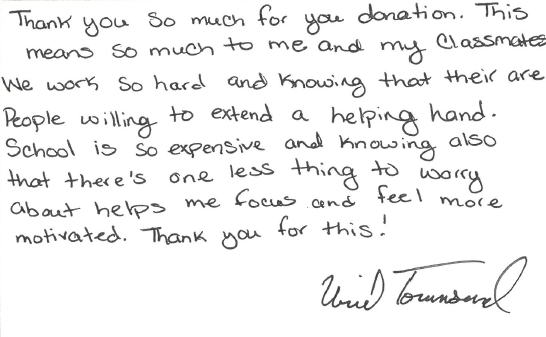 Thank you so much for you donation. This
means so much to me and my classmates
We work so hard and knowing that their are
People willing to extend a helping hand.
School is so expensive and knowing also
that there's one less thing to worry
about helps me focus and feel more
motivated. Thank you for this!
Townsend